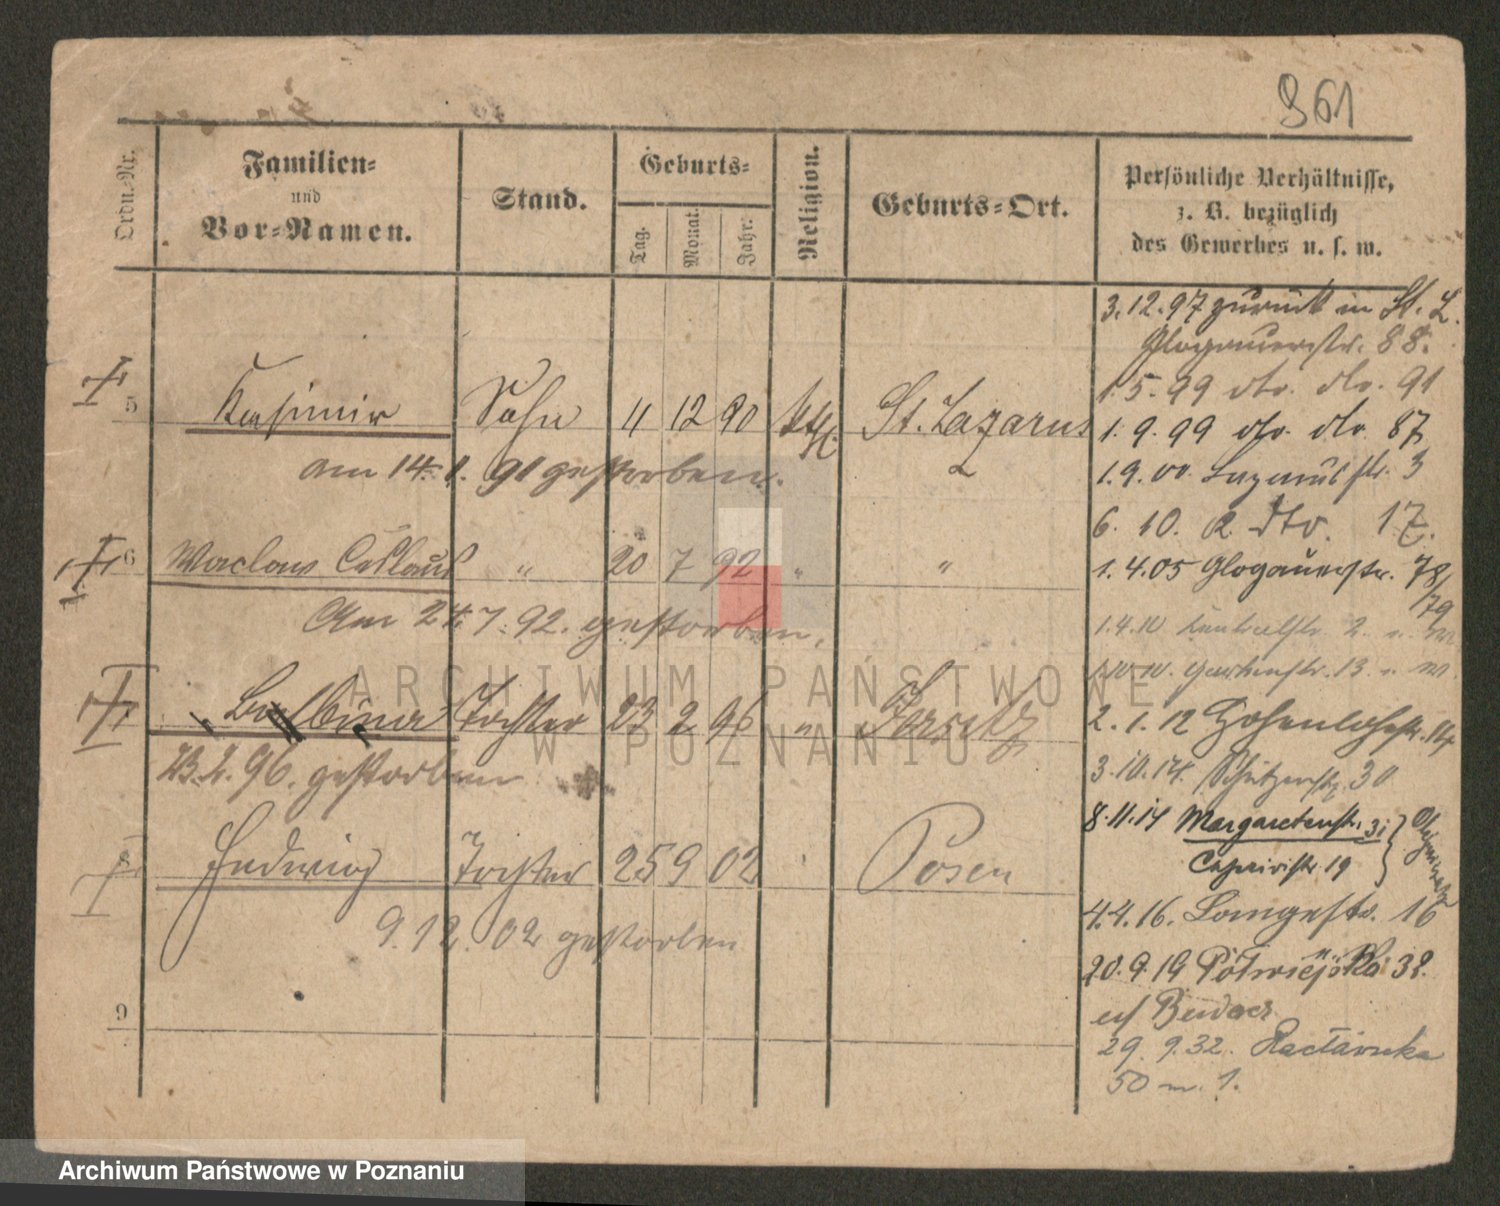 961
Ordn.-Nr.
Familien-
und
Vor-Namen.
Stand.
Geburts-
Tag.
Monat.
Jahr.
Religion.
Geburts-Ort.
Persönliche Verhältnisse,
z. B. bezüglich
des Gewerbes u. s. w.
5 Kasimir Sohn 4 12 90 kth. St. Lazarus
am 14. 1. 91 gestorben.
6 Waclaw Ceslaus " 20 7 92 " "
Am 24. 7. 92. gestorben.
Balbina Tochter 23 2 96 " Jersitz
23. 2. 96. gestorben
8 Hedwig Tochter 25 9 02 Posen
9. 12. 02 gestorben
9
3. 12. 97 zurück in St. L.
Glogauerstr. 88.
1. 5. 99 dto. dto. 91
1. 9. 99 dto. dto. 87
1. 9. 00. Lazarusstr. 3
6. 10. 2. dto. 17.
1. 4. 05 Glogauerstr. 78/
79
1. 4. 10 Kentralstr. 2.
Gartenstr. 13
2. 1. 12 Hohenlohestr.
3. 10. 14. Schützenstr. 30
8. 11. 14 Margaretenstr. 31
Caprivistr. 19
4. 4. 16. Langestr. 16
20. 9. 19 Półwiejska 38.
29. 9. 32.
50 m. 1.
ARCHIWUM PAŃSTWOWE
W POZNANIU
Archiwum Państwowe w Poznaniu